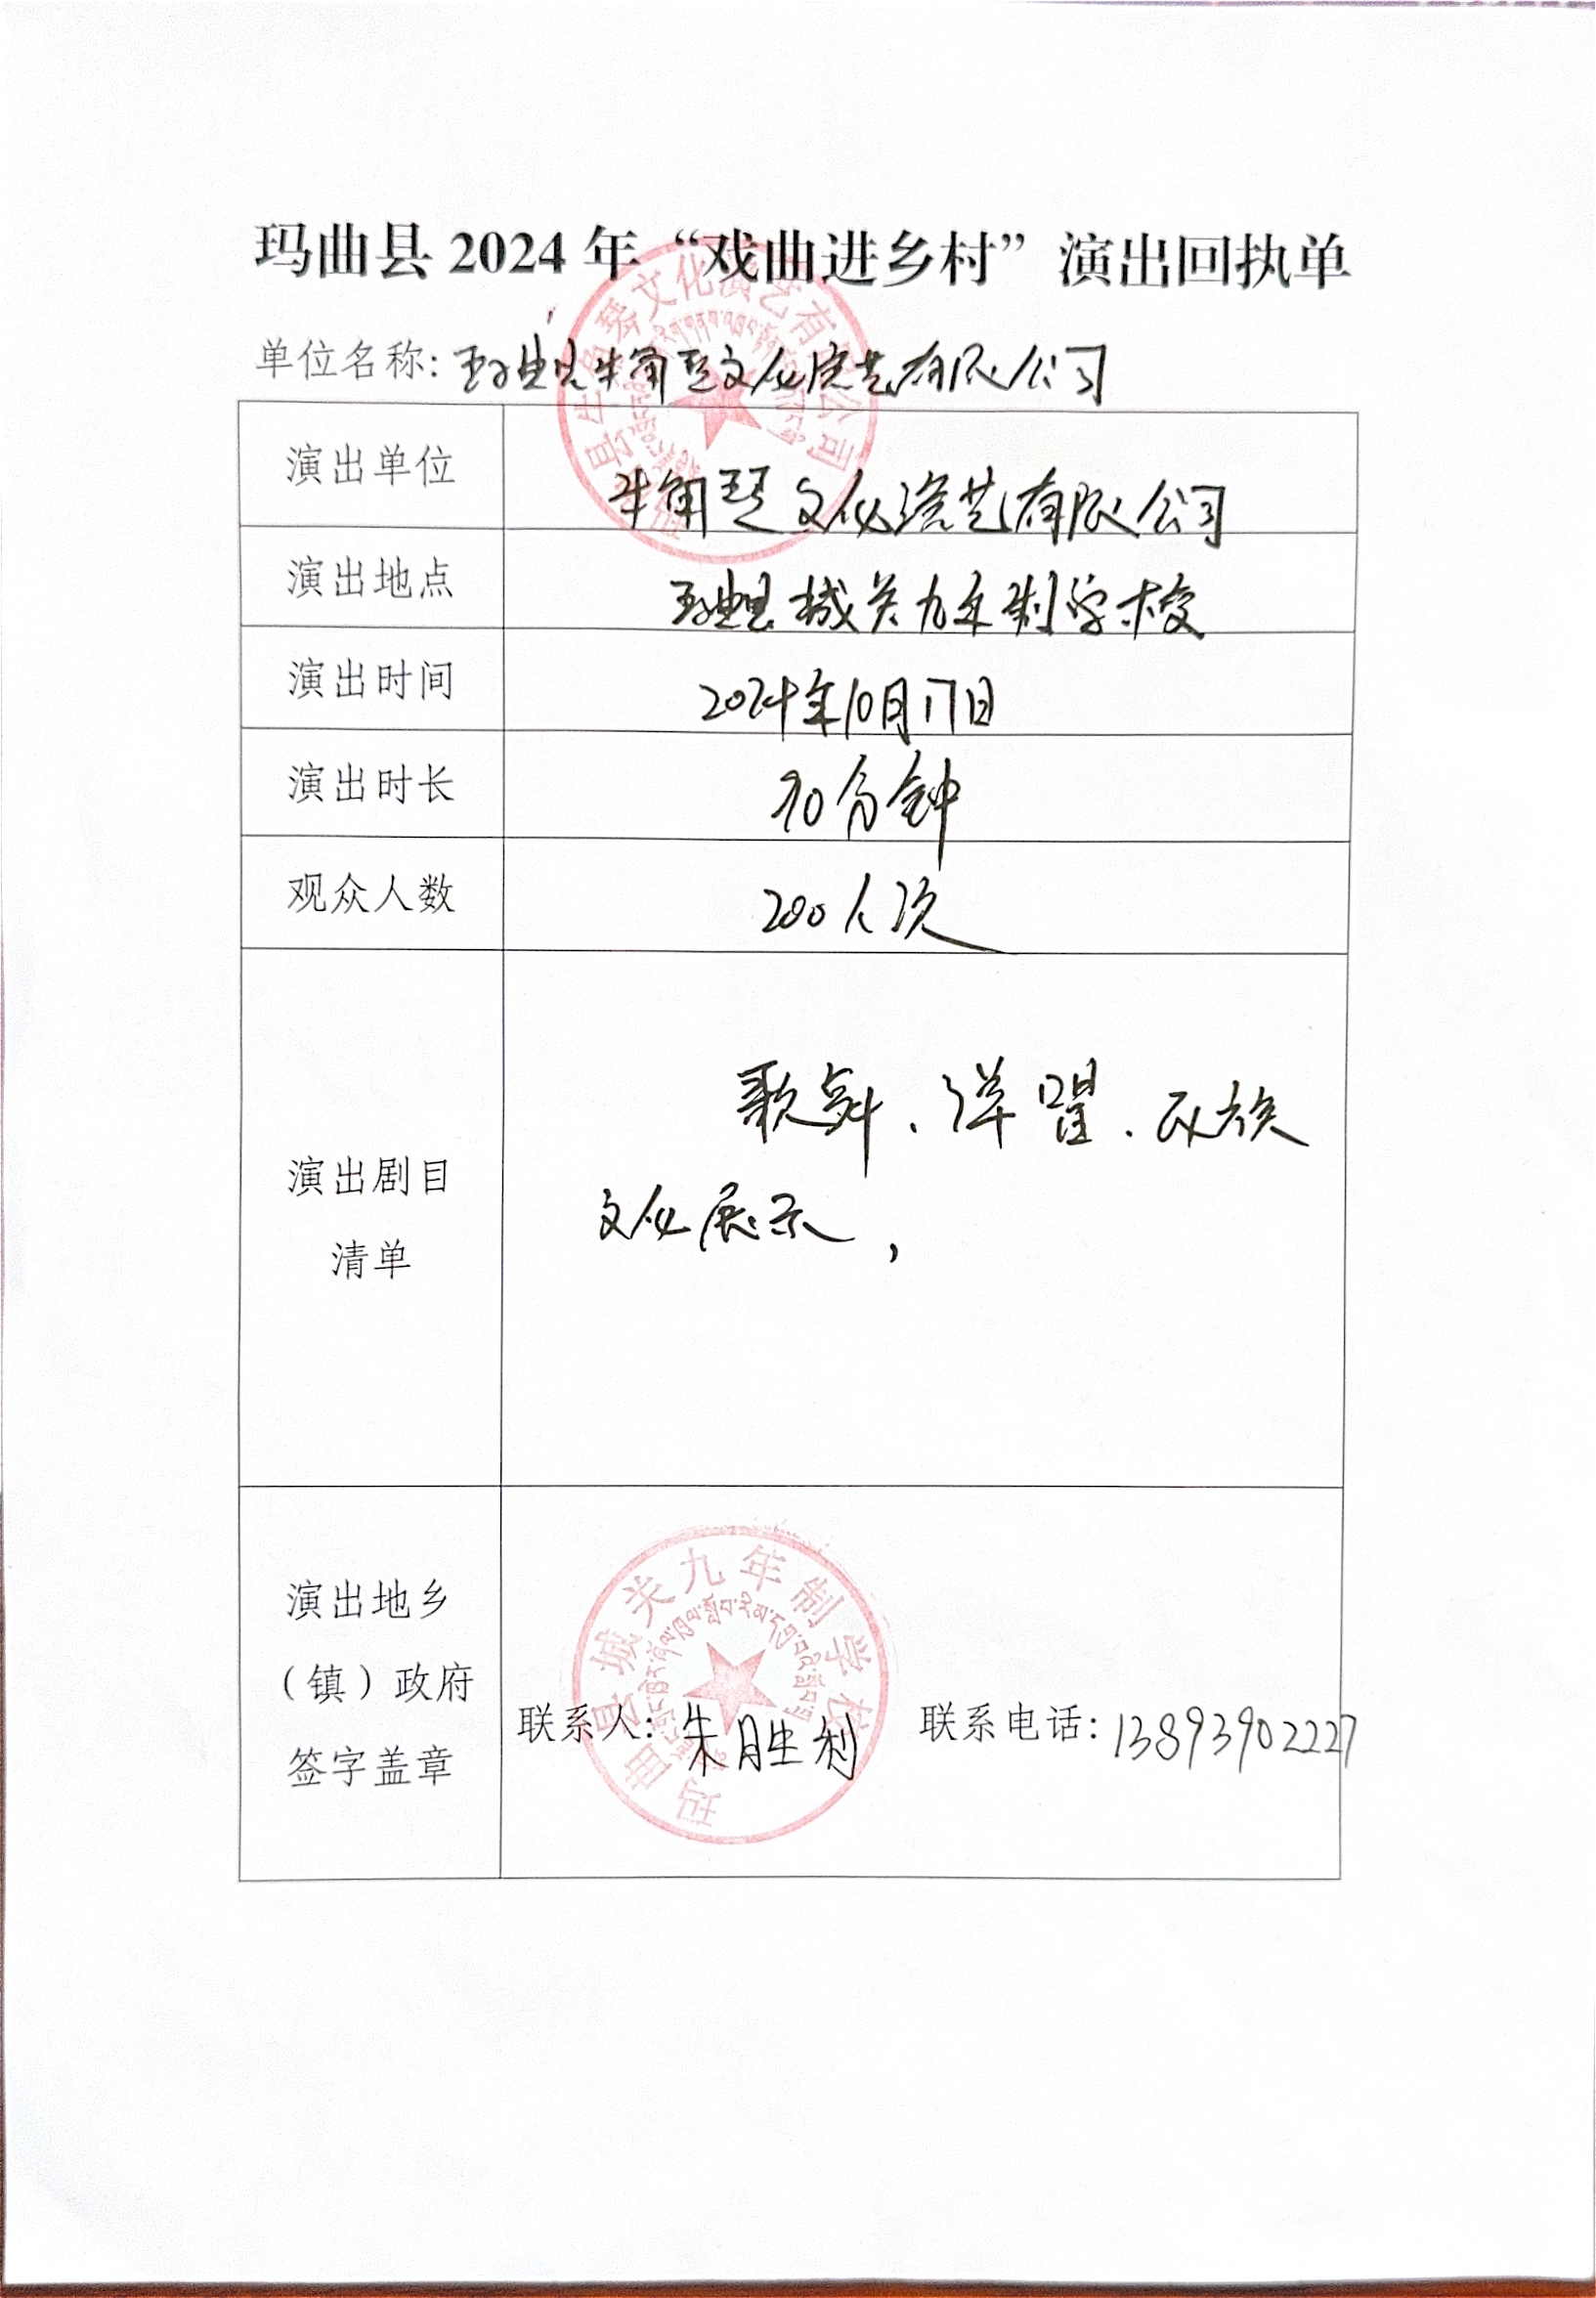 玛曲县 2024 年“戏曲进乡村”演出回执单
单位名称: 玛曲县牛角琴文化演艺有限公司
演出单位
牛角琴文化演艺有限公司
演出地点
玛曲县城关九年制学校
演出时间
2024年10月17日
演出时长
90分钟
观众人数
200人次
演出剧目
清单
歌舞、弹唱、民族
文化展示,
演出地乡
（镇）政府
签字盖章
联系人: 朱胜利 联系电话: 13893902227
玛曲县城关九年制学校
县牛角琴文化演艺有限公司